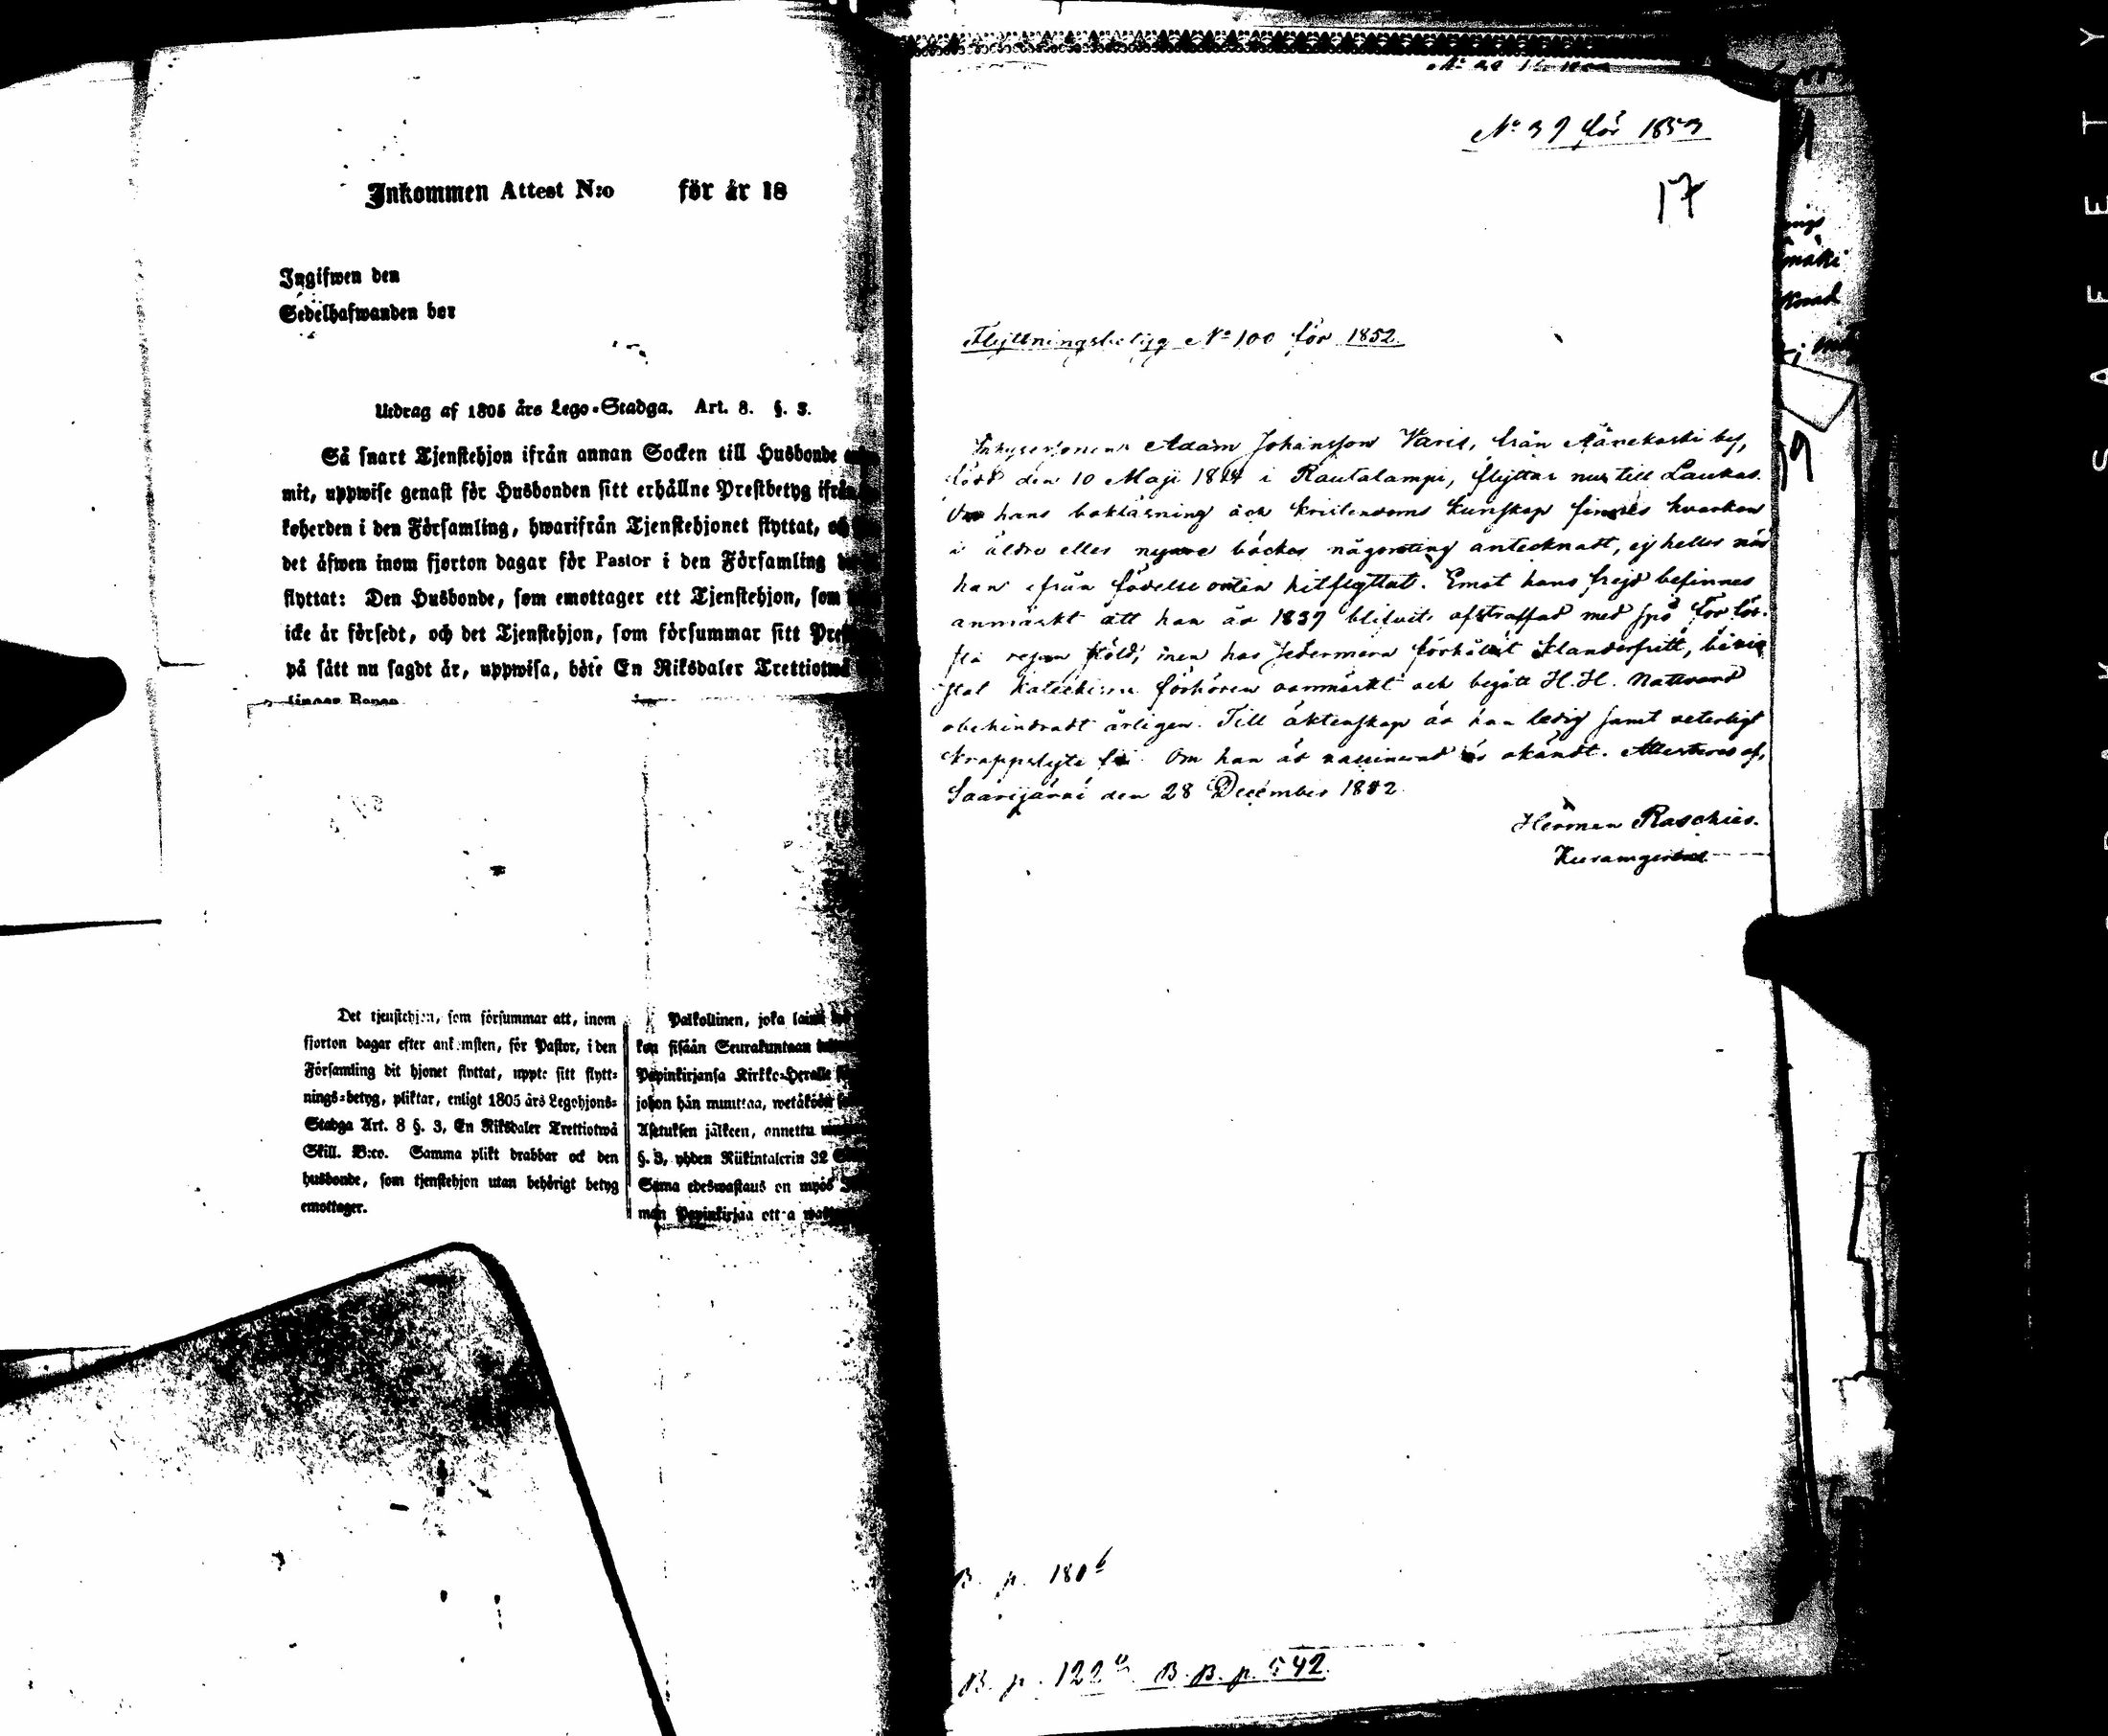 Inkommen Attest N:o för år 18
Ingifwen den
Sedelhafwanden bor
Utdrag af 1805 års Lego-Stadga. Art. 8. §. 3.
Så snart Tjenstehjon ifrån annan Socken till Husbonde
mit, uppwise genast för Husbonden sitt erhållne Prestbetyg ifrån
koherden i den Församling, hwarifrån Tjenstehjonet flyttat,
det äfwen inom fjorton dagar för Pastor i den Församling
flyttat: Den Husbonde, som emottager ett Tjenstehjon, som
icke är försedt, och det Tjenstehjon, som försummar sitt
på sätt nu sagdt är, uppwisa, böte En Riksdaler Trettiotwå
Det tjenstehjon, som försummar att, inom
fjorton dagar efter ankomsten, för Pastor, i den
Församling dit hjonet flyttat, uppte sitt flytt-
nings-betyg, pliktar, enligt 1805 års Legohjons-
Stadga Art. 8 §. 3, En Riksdaler Trettiotwå
Skill. B:co. Samma plikt drabbar ock den
husbonde, som tjenstehjon utan behörigt betyg
emottager.
Palkollinen, joka
kon sisään Seurakuntaan
Papinkirjansa Kirkko-Herralle
johon hän muuttaa, wetäköön
Asetuksen jälkeen, annettu
§. 3, yhden Riikintalerin 32
Sama edeswastaus on myös
män Papinkirjaa ottaa
N:o 39 för 1853
17
Flyttningsbetyg N:o 100 för 1852.
Adam Johansson Varis, från Äänekoski by,
född den 10 Maji 1814 i Rautalampi, flyttar nu till Laukas.
Om hans bokläsning och kristendoms kunskap finnes hvarken
i äldre eller nyare böcker någonting antecknadt, ej heller när
han ifrån födelse orten hitflyttat. Emot hans frejd befinnes
anmärkt att han år 1839 blifvit afstraffad med spö för för-
sta resan stöld; men har sedermera förhållit sig klanderfritt, bevis
tat katechismi förhören oanmärkt och begått H.H. Nattvard
obehindradt årligen. Till äktenskap är han ledig samt veterligt
kroppslyte fri. Om han är vaccinerad är okändt. Attesteras af,
Saarijärvi den 28 December 1852.
Herman Raschier.
B. p. 180 b
B. p. 122 B. B. p. 542.